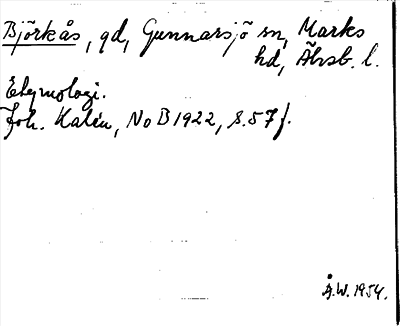 Björkås, gd, Gunnarsjö sn, Marks
hd, Älvsb. l.
Etymologi.
Joh. Kalén, NoB 1922, s. 57 f.
Å.W. 1954.